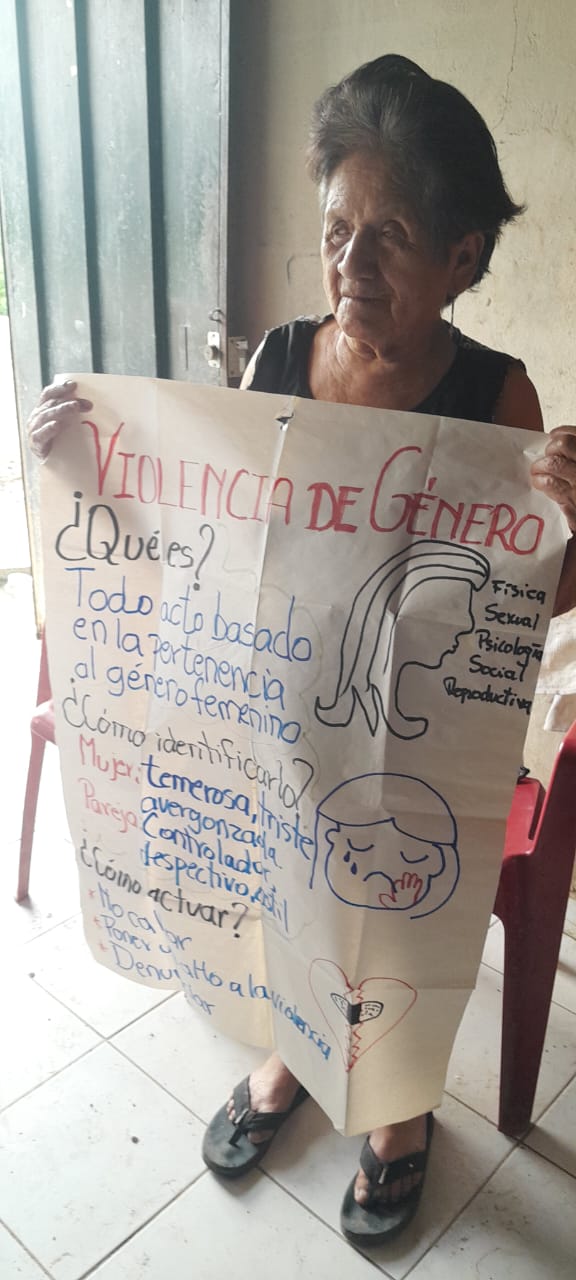 VIOLENCIA DE GÉNERO
¿Qué es?
Todo acto basado
en la pertenencia
al género femenino
Física
Sexual
Psicología
Social
Reproductiva
¿Cómo identificarlo?
Mujer: temerosa, triste
avergonzada
Pareja: Controlador,
despectivo,
¿Cómo actuar?
* No callar
* Poner alto a la violencia